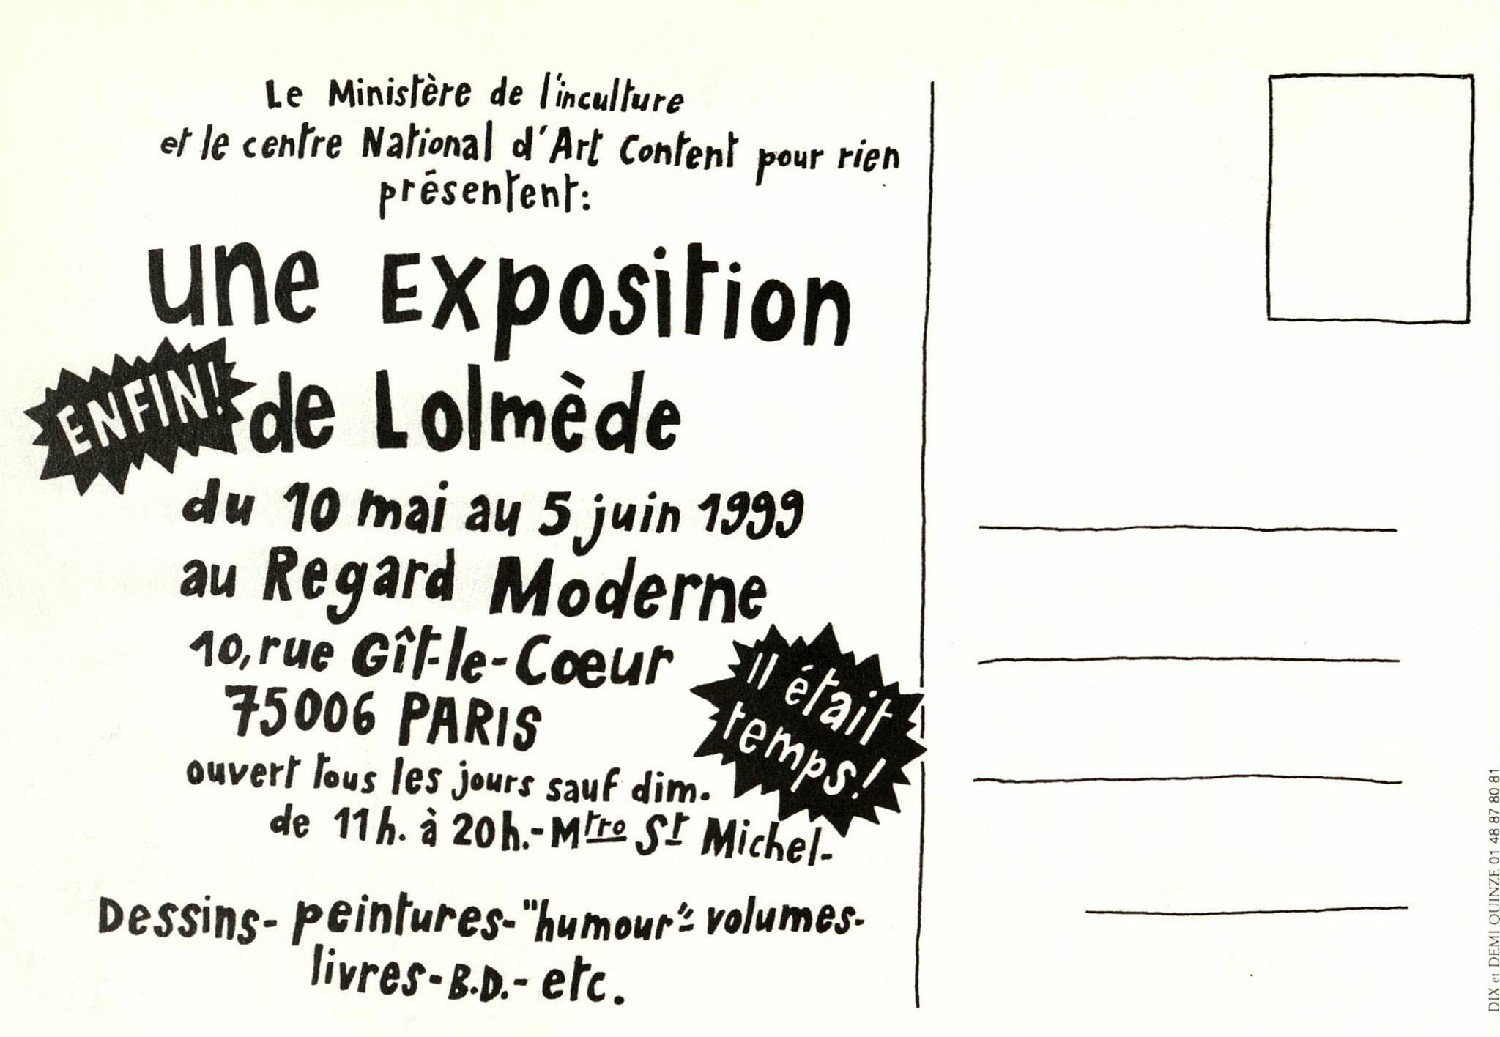 Le Ministère de l'inculture
et le centre National d'Art Content pour rien
présentent:
une Exposition
ENFIN!
de Lolmède
du 10 mai au 5 juin 1999
au Regard Moderne
10, rue Gît-le-Cœur
75006 PARIS
Il était
temps!
ouvert tous les jours sauf dim.
de 11h. à 20h.- Mtro St Michel-
Dessins- peintures- "humour"- volumes-
livres- B.D.- etc.
DIX et DEMI QUINZE 01 48 87 80 81